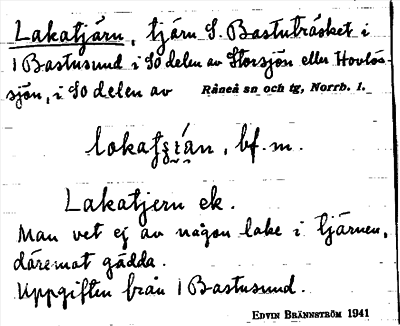 Lakatjärn, tjärn S. Bastuträsket i
1 Bastusund i SO delen av Storsjön eller Hovlös-
sjön, i SO delen av Råneå sn och tg, Norrb. l.
lokatʂı̯án, bf. m.
Lakatjern ek.
Man vet ej av någon lake i tjärnen,
däremot gädda.
Uppgiften från 1 Bastusund.
EDVIN BRÄNNSTRÖM 1941